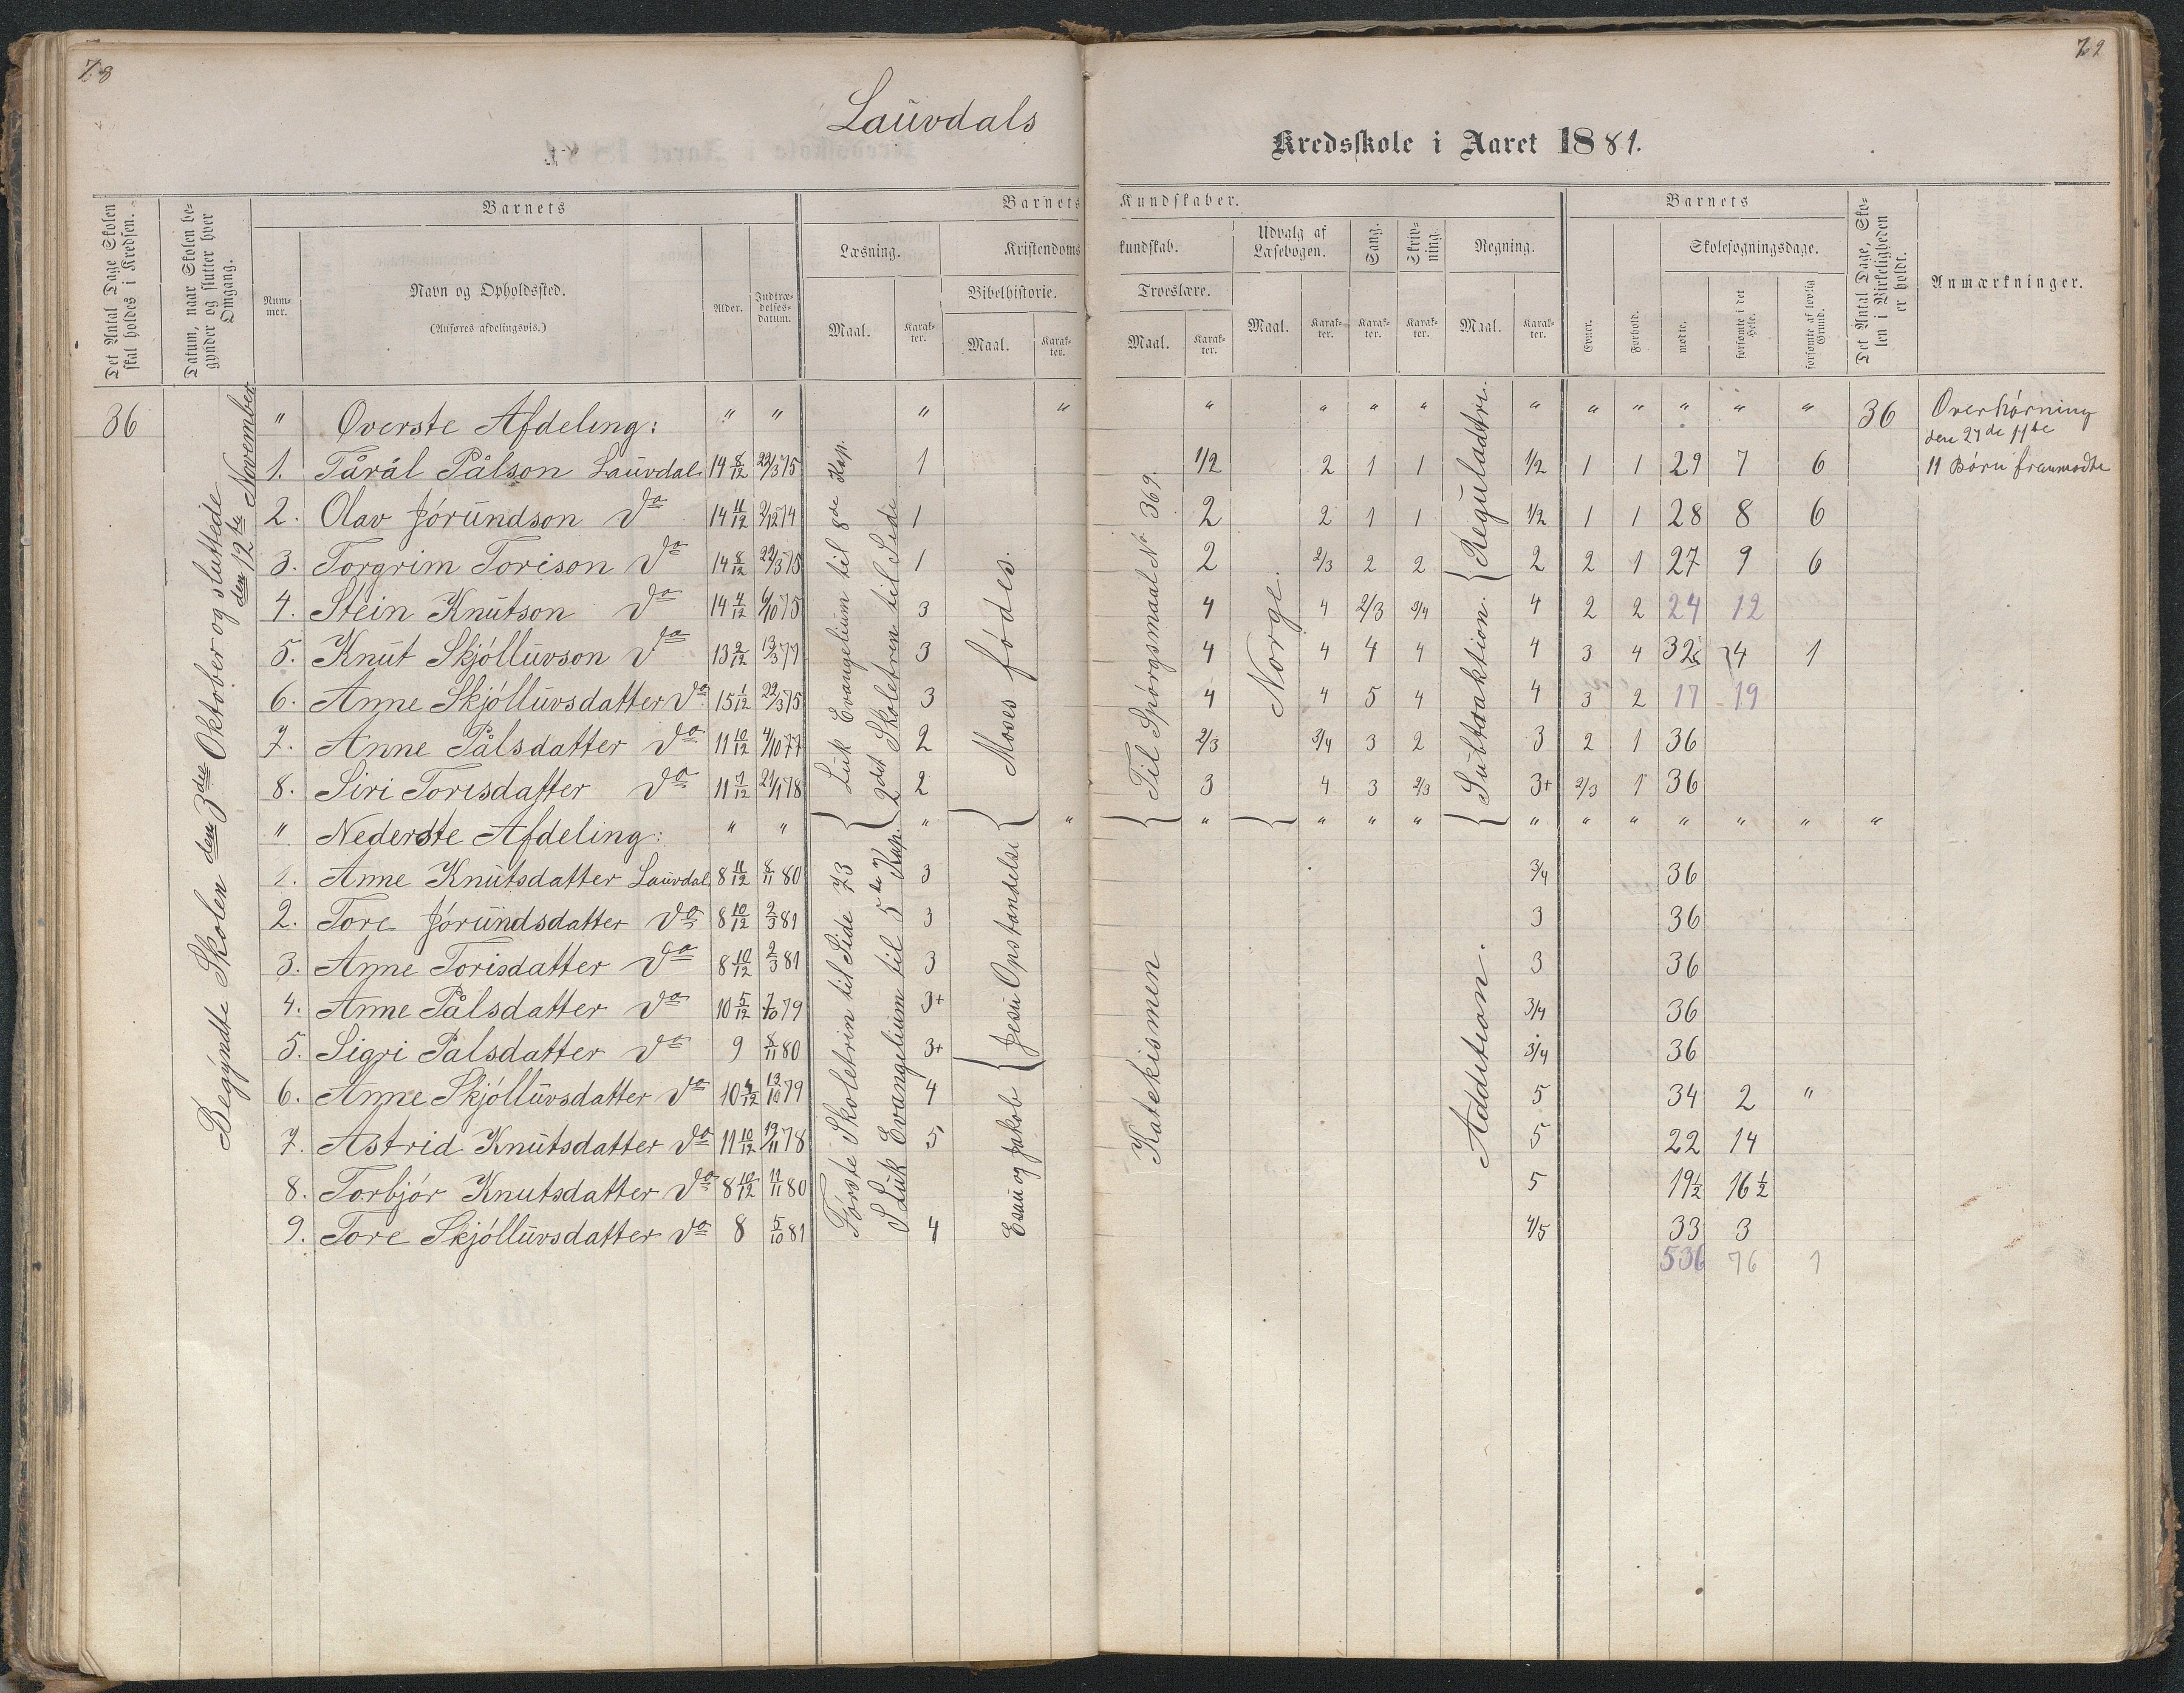 78
79
Lauvdals
Kredsskole i Aaret 1881.
Det Antal Dage Skolen skal holdes i Kredsen.
Datum, naar Skolen begynder og slutter hver Omgang.
Barnets
Nummer.
Navn og Opholdssted.
(Anføres afdelingsvis.)
Alder.
Indtrædelsesdatum.
Barnets Kundskaber.
Læsning.
Maal.
Karakter.
Kristendomskundskab.
Bibelhistorie.
Maal.
Karakter.
Troeslære.
Maal.
Karakter.
Udvalg af Læsebogen.
Maal.
Karakter.
Sang.
Karakter.
Skrivning.
Karakter.
Regning.
Maal.
Karakter.
Barnets
Evner.
Forhold.
Skolesøgningsdage.
mødte.
forsømte i det Hele.
forsømte af lovlig Grund.
Det Antal Dage, Skolen i Virkeligheden er holdt.
Anmærkninger.
36
Begyndte Skolen den 3die Oktober og sluttede den 12te November
" Øverste Afdeling: " " " " " " " " " " " " " " 36 Overhørning
den 27de 11te
1. Tårål Pålson Lauvdal 14 8/12 22/3 75 1 1/2 2 1 1 1/2 1 1 29 7 6 11 Børn fremmødte
2. Olav Jórundson do 14 11/12 2/12 74 1 2 2 1 1 1/2 1 1 28 8 6
3. Torgrim Torison do 14 8/12 22/3 75 1 2 2/3 2 2 2 2 1 27 9 6
4. Stein Knutson do 14 4/12 6/10 75 3 4 4 2/3 3/4 4 2 2 24 12
5. Knut Skjólluvson do 13 2/12 13/3 77 3 4 4 4 4 4 3 4 32 4 1
6. Anne Skjólluvsdatter do 15 1/12 22/3 75 3 4 4 5 4 4 3 2 17 19
7. Anne Pålsdatter do 11 10/12 4/10 77 2 2/3 3/4 3 2 3 2 1 36
8. Siri Torisdatter do 11 7/12 21/1 78 2 3 4 3 2/3 3+ 2/3 1 36
" Nederste Afdeling: " " " " " " " " " " " " " " "
1. Anne Knutsdatter Lauvdal 8 11/12 8/11 80 3 3/4 36
2. Tore Jórundsdatter do 8 10/12 2/3 81 3 3 36
3. Anne Torisdatter do 8 10/12 2/3 81 3 3 36
4. Anne Pålsdatter do 10 5/12 7/10 79 3+ 3/4 36
5. Sigri Palsdatter do 9 8/11 80 3+ 3/4 36
6. Anne Skjólluvsdatter do 10 4/12 13/10 79 4 5 34 2 "
7. Astrid Knutsdatter do 11 10/12 19/11 78 5 5 22 14
8. Torbjór Knutsdatter do 8 10/12 11/11 80 5 19½ 16½
9. Tore Skjólluvsdatter do 8 5/10 81 4 4/5 33 3
536 76 1
Luk Evangelium til 8de Kap.
2det Skoletren til Side
Moses fødes.
Til Spórgsmaal № 369.
Norge.
Subtraktion. Reguladetri.
Fórste Skoletrin til Side 73
S Luk Evangelium til 5te Kap.
Esau og Jakob
Jesu Opstandelse
Katekismen
Addition.